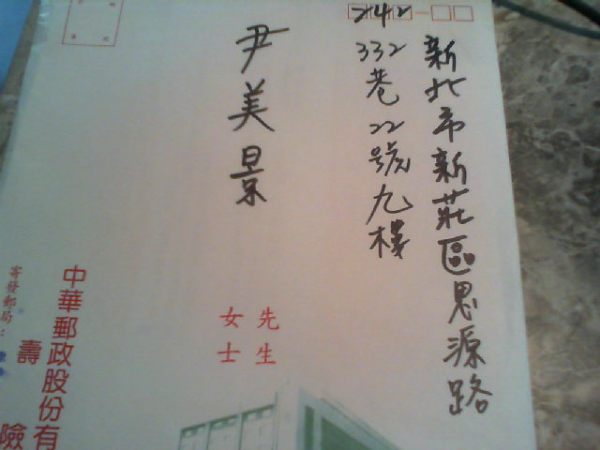 242
新北市新莊區思源路
332巷22號九樓
尹美景
先生
女士
中華郵政股份有
壽險
寄發郵局：